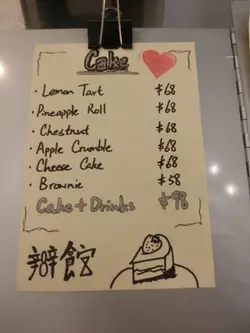 Cake
· Lemon Tart $68
· Pineapple Roll $68
· Chestnut $68
· Apple Crumble $68
· Cheese Cake $68
· Brownie $58
Cake + Drinks $98